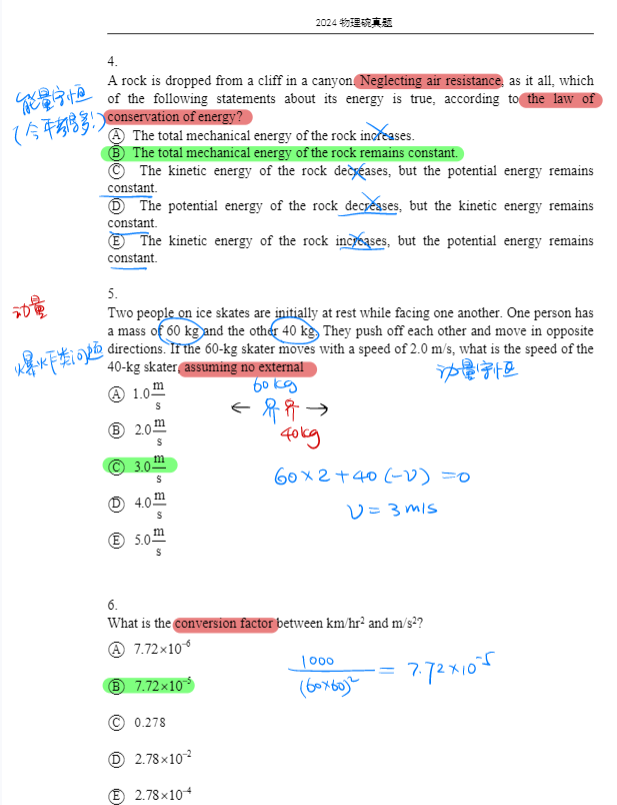 2024 物理碗真题
4.
A rock is dropped from a cliff in a canyon. Neglecting air resistance, as it all, which
能量守恒
of the following statements about its energy is true, according to the law of
(今年超多!)
conservation of energy?
Ⓐ The total mechanical energy of the rock increases.
Ⓑ The total mechanical energy of the rock remains constant.
Ⓒ The kinetic energy of the rock decreases, but the potential energy remains
constant.
Ⓓ The potential energy of the rock decreases, but the kinetic energy remains
constant.
Ⓔ The kinetic energy of the rock increases, but the potential energy remains
constant.
5.
动量
Two people on ice skates are initially at rest while facing one another. One person has
a mass of 60 kg and the other 40 kg. They push off each other and move in opposite
爆炸类问题
directions. If the 60-kg skater moves with a speed of 2.0 m/s, what is the speed of the
40-kg skater, assuming no external
动量守恒
60kg
Ⓐ 1.0 m/s
← →
40kg
Ⓑ 2.0 m/s
Ⓒ 3.0 m/s
60×2+40(-v)=0
Ⓓ 4.0 m/s
v=3m/s
Ⓔ 5.0 m/s
6.
What is the conversion factor between km/hr² and m/s²?
Ⓐ 7.72×10⁻⁶
1000/(60×60)² = 7.72×10⁻⁵
Ⓑ 7.72×10⁻⁵
Ⓒ 0.278
Ⓓ 2.78×10⁻²
Ⓔ 2.78×10⁻⁴